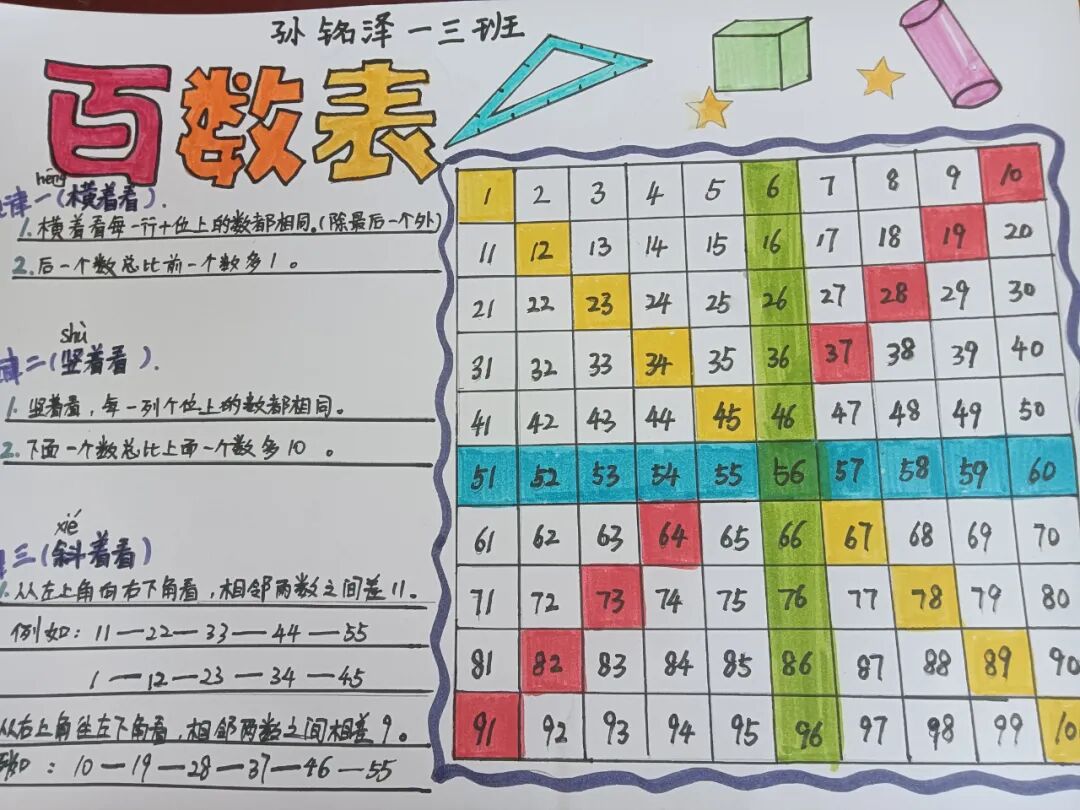 孙铭泽一三班
百数表
héng
律一(横着看).
1.横着看每一行十位上的数都相同。(除最后一个外)
2.后一个数总比前一个数多1。
shù
律二(竖着看).
1.竖着看,每一列个位上的数都相同。
2.下面一个数总比上面一个数多10。
xié
三(斜着看)
1.从左上角向右下角看,相邻两数之间差11。
例如:11—22—33—44—55
1—12—23—34—45
从右上角往左下角看,相邻两数之间相差9。
例如:10—19—28—37—46—55
1 2 3 4 5 6 7 8 9 10
11 12 13 14 15 16 17 18 19 20
21 22 23 24 25 26 27 28 29 30
31 32 33 34 35 36 37 38 39 40
41 42 43 44 45 46 47 48 49 50
51 52 53 54 55 56 57 58 59 60
61 62 63 64 65 66 67 68 69 70
71 72 73 74 75 76 77 78 79 80
81 82 83 84 85 86 87 88 89 90
91 92 93 94 95 96 97 98 99 10